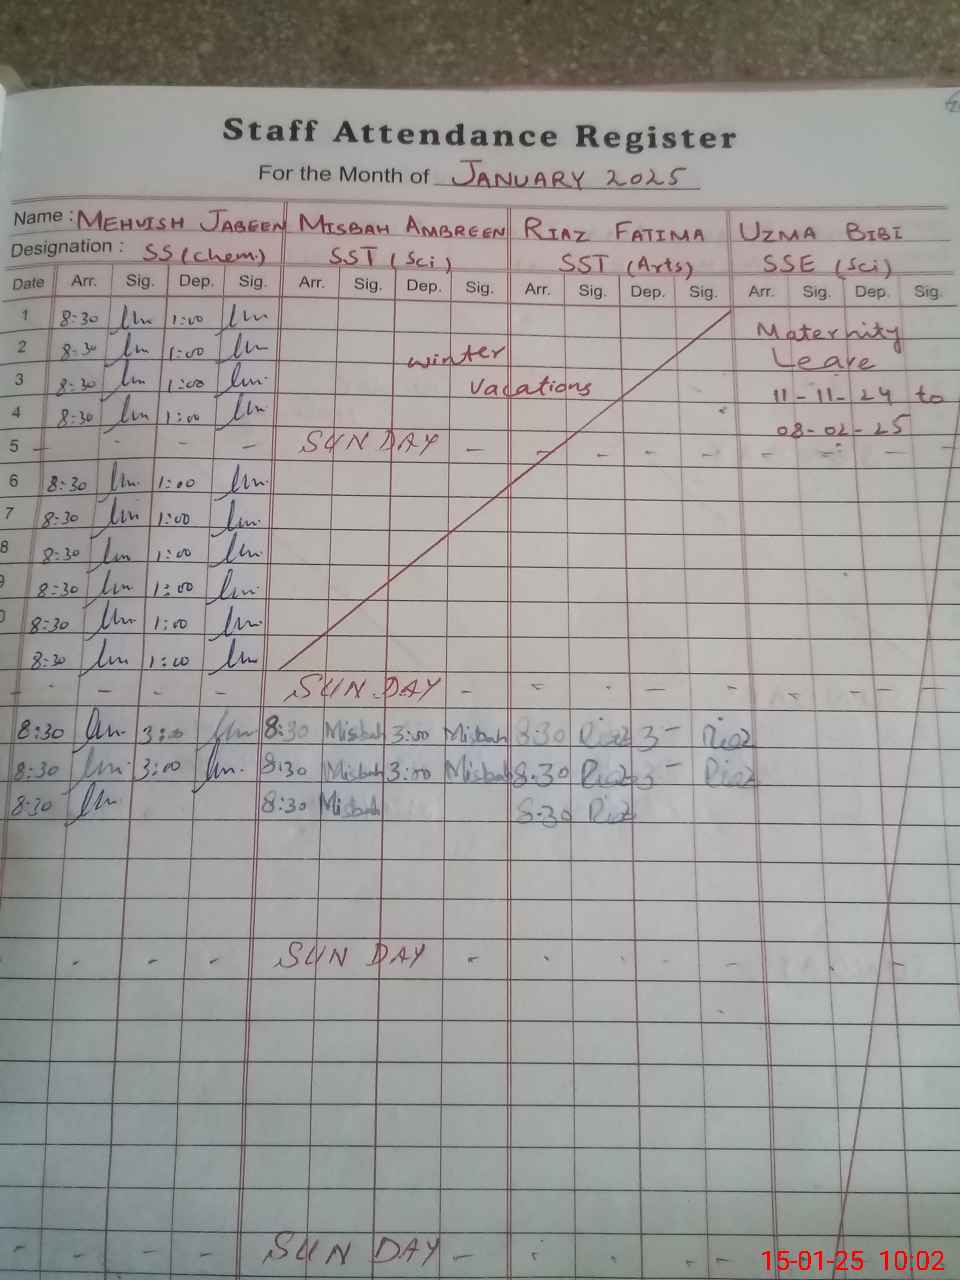 Staff Attendance Register
For the Month of JANUARY 2025
Name : MEHVISH JABEEN MISBAH AMBREEN RIAZ FATIMA UZMA BIBI
Designation : SS (Chem.) SST (Sci) SST (Arts) SSE (Sci)
Date Arr. Sig. Dep. Sig. Arr. Sig. Dep. Sig. Arr. Sig. Dep. Sig. Arr. Sig. Dep. Sig.
1 8:30 1:00 Maternity
2 8:30 1:00 winter Leave
3 8:30 1:00 Vacations 11-11-24 to
4 8:30 1:00 08-02-25
5 - - - - SUNDAY - - - - - - - - -
6 8:30 1:00
7 8:30 1:00
8 8:30 1:00
9 8:30 1:00
0 8:30 1:00
8:30 1:00
- - - - SUNDAY - - - - - - - - -
8:30 3:00 8:30 Misbah 3:00 Misbah 8:30 Riaz 3- Riaz
8:30 3:00 8:30 Misbah 3:00 Misbah 8:30 Riaz 3- Riaz
8:30 8:30 Misbah 8:30 Riaz
- - - SUNDAY - - - - - - -
- - - - SUNDAY - - - - -
15-01-25 10:02